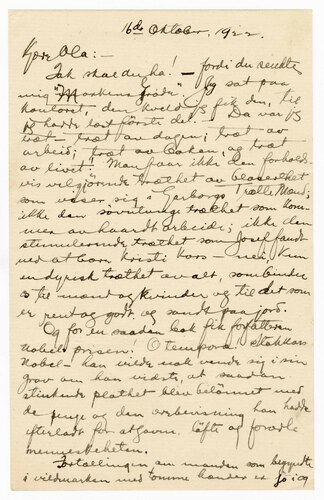 16de Oktober, 1922.
Kjære Ola:-
Tak skal du ha! — fordi du sendte
mig "Markens Grøde". Jeg sat paa
kontoret, den kveld jeg fik den, til
jeg hadde læst første del. Da var jeg
træt — træt av dagen; træt av
arbeid; træt av boken, og træt
av livet! Man faar ikke den forholds-
vis velgjørende træthet av blaserthet
som viser sig i Garborgs "Trætte Mænd;
ikke den søvntunge træthet som kom-
mer av haardt arbeide; ikke den
stimulerende træthet som Josef fandt
ved at bære Kristi kors — nei. Kun
en dyrisk træthet av alt, som binder
til mænd og kvinder og til det som
er pent og godt, og sandt paa jord.
Og for en saadan bok fik forfatteren
Nobel-prisen! O tempora! Stakkars
Nobel — han vilde nok vende sig i sin
grav om han vidste, at saadan
stinkende plathet blev belønnet med
de penge og den anvisning han hadde
efterladt for at gavn, løfte og foredle
menneskeheten.
Fortællingen om manden som begyndte
i vildmarken med tomme hænder er jo i og